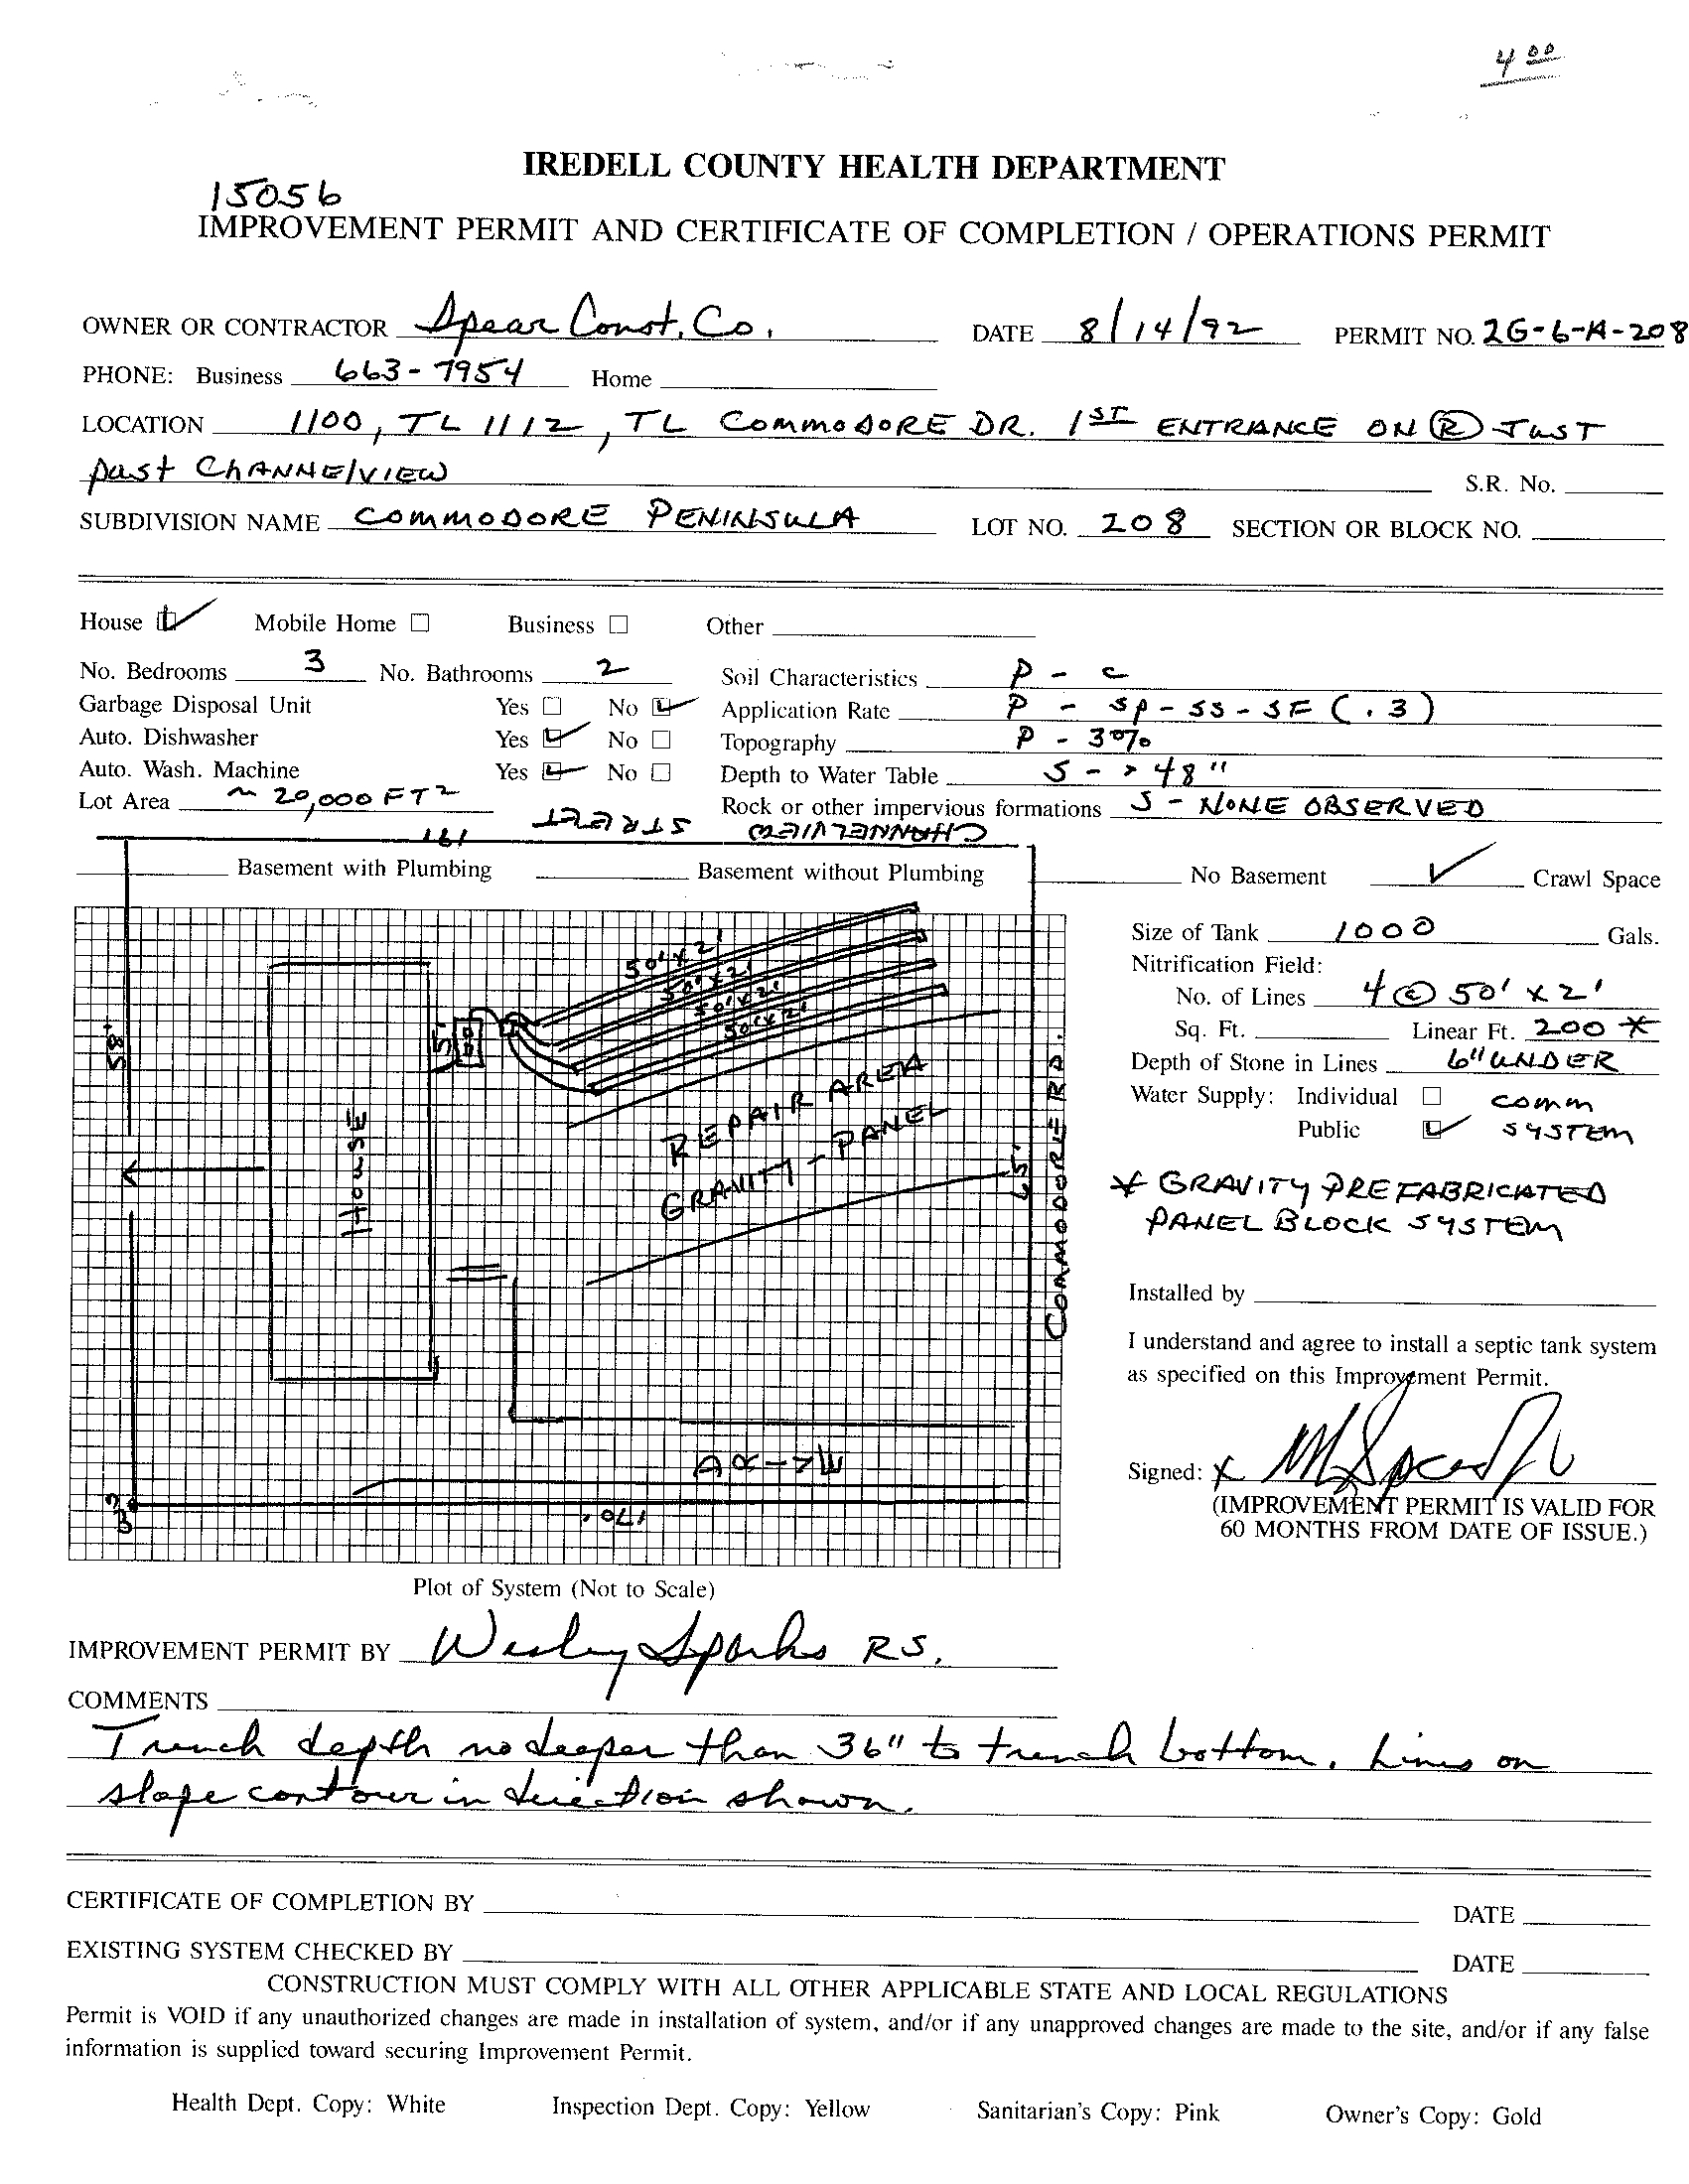 4 00
IREDELL COUNTY HEALTH DEPARTMENT
15056
IMPROVEMENT PERMIT AND CERTIFICATE OF COMPLETION / OPERATIONS PERMIT
OWNER OR CONTRACTOR Spear Const. Co. DATE 8/14/92 PERMIT NO. 2G-6-A-208
PHONE: Business 663-7954 Home
LOCATION 1100, TL 1112, TL COMMODORE DR. 1ST ENTRANCE ON R JUST
past CHANNELVIEW S.R. No.
SUBDIVISION NAME COMMODORE PENINSULA LOT NO. 208 SECTION OR BLOCK NO.
House Mobile Home Business Other
No. Bedrooms 3 No. Bathrooms 2 Soil Characteristics P - C
Garbage Disposal Unit Yes No Application Rate P - SP-SS-SF (.3)
Auto. Dishwasher Yes No Topography P - 3%
Auto. Wash. Machine Yes No Depth to Water Table S - > 48"
Lot Area ~ 20,000 FT2 Rock or other impervious formations S - NONE OBSERVED
191 STREET CHANNELVIEW
Basement with Plumbing Basement without Plumbing No Basement Crawl Space
50'x2'
50'x2'
50'x2'
50'x2'
58'
5'
HOUSE
REPAIR AREA
GRAVITY - PANEL
65'
COMMODORE RD.
DRIVE
170'
Size of Tank 1000 Gals.
Nitrification Field:
No. of Lines 4 @ 50' x 2'
Sq. Ft. Linear Ft. 200 *
Depth of Stone in Lines 6" UNDER
Water Supply: Individual COMM
Public SYSTEM
* GRAVITY PREFABRICATED
PANEL BLOCK SYSTEM
Installed by
I understand and agree to install a septic tank system
as specified on this Improvement Permit.
Signed: X
(IMPROVEMENT PERMIT IS VALID FOR
60 MONTHS FROM DATE OF ISSUE.)
Plot of System (Not to Scale)
IMPROVEMENT PERMIT BY Wesley Sparks R.S.
COMMENTS
Trench depth no deeper than 36" to trench bottom. Lines on
slope contour in direction shown.
CERTIFICATE OF COMPLETION BY DATE
EXISTING SYSTEM CHECKED BY DATE
CONSTRUCTION MUST COMPLY WITH ALL OTHER APPLICABLE STATE AND LOCAL REGULATIONS
Permit is VOID if any unauthorized changes are made in installation of system, and/or if any unapproved changes are made to the site, and/or if any false
information is supplied toward securing Improvement Permit.
Health Dept. Copy: White Inspection Dept. Copy: Yellow Sanitarian's Copy: Pink Owner's Copy: Gold